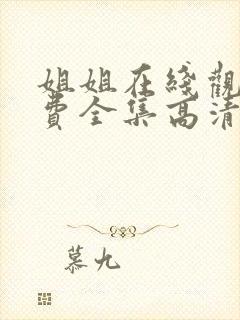 姐姐在綫觀
費全集高清
慕九